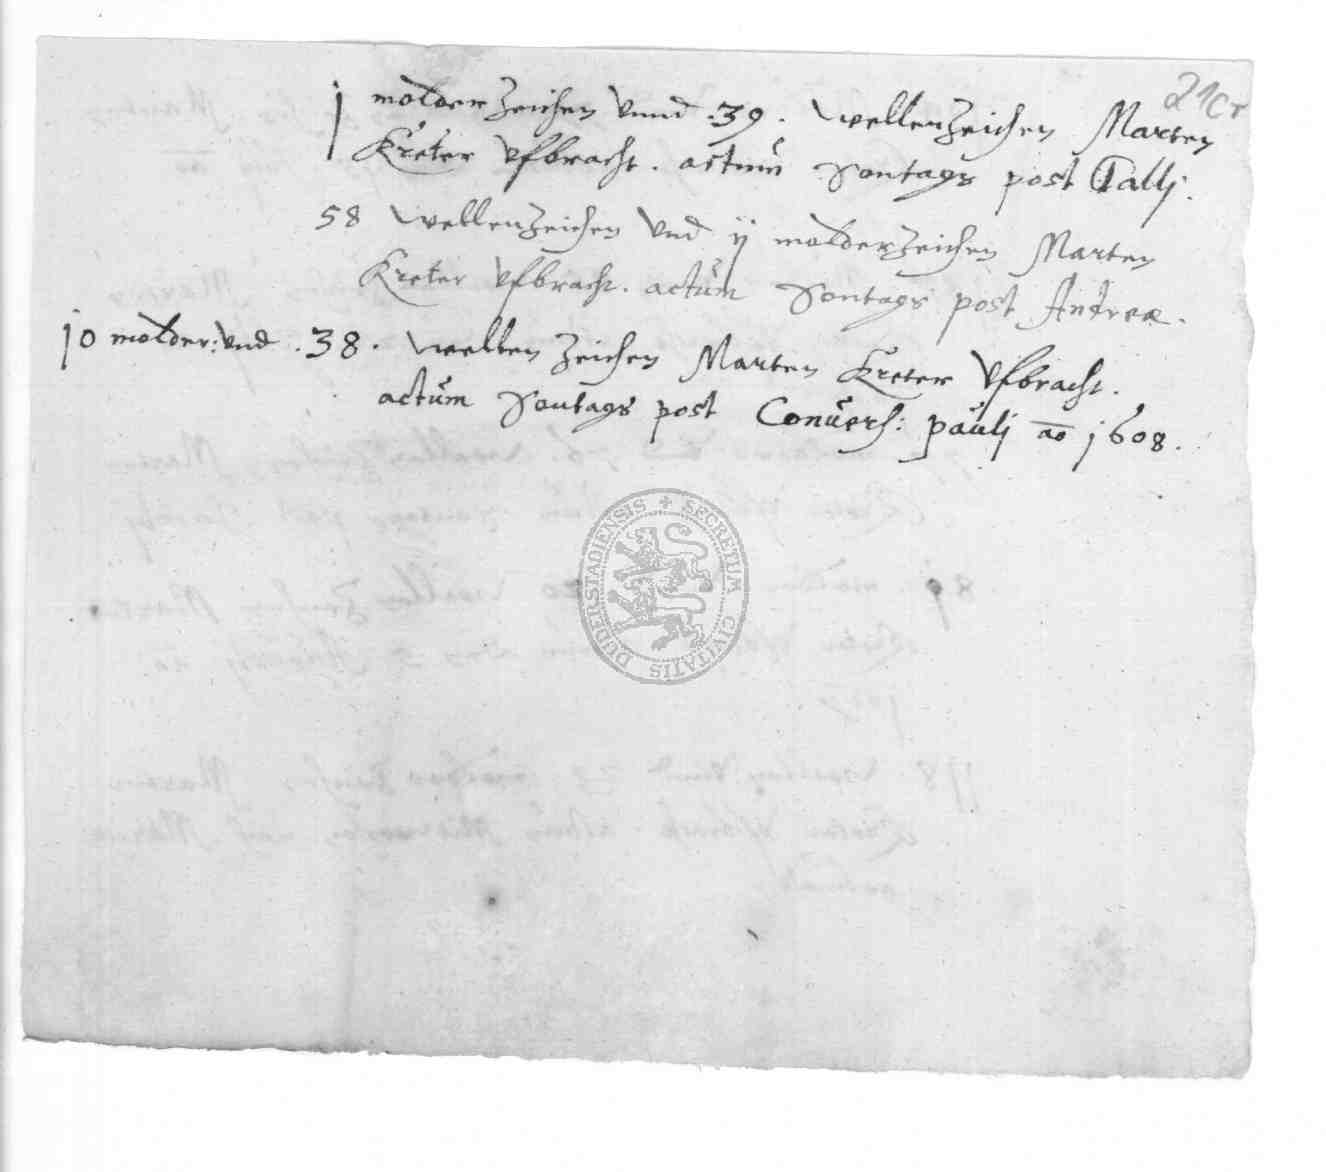 21cr
j molderzeichen vnnd .39. wellenzeichen Marten
Kreter vfbracht. actum Sontags post Gallj.
58 wellenzeichen vnd ij molderzeichen Marten
Kreter vfbracht. actum Sontags post Andreæ.
j0 molder: vnd .38. wellen zeichen Marten Kreter vfbracht.
actum Sontags post Conuers: paulj ao j608.
SECRETUM CIVITATIS DUDERSTADIENSIS